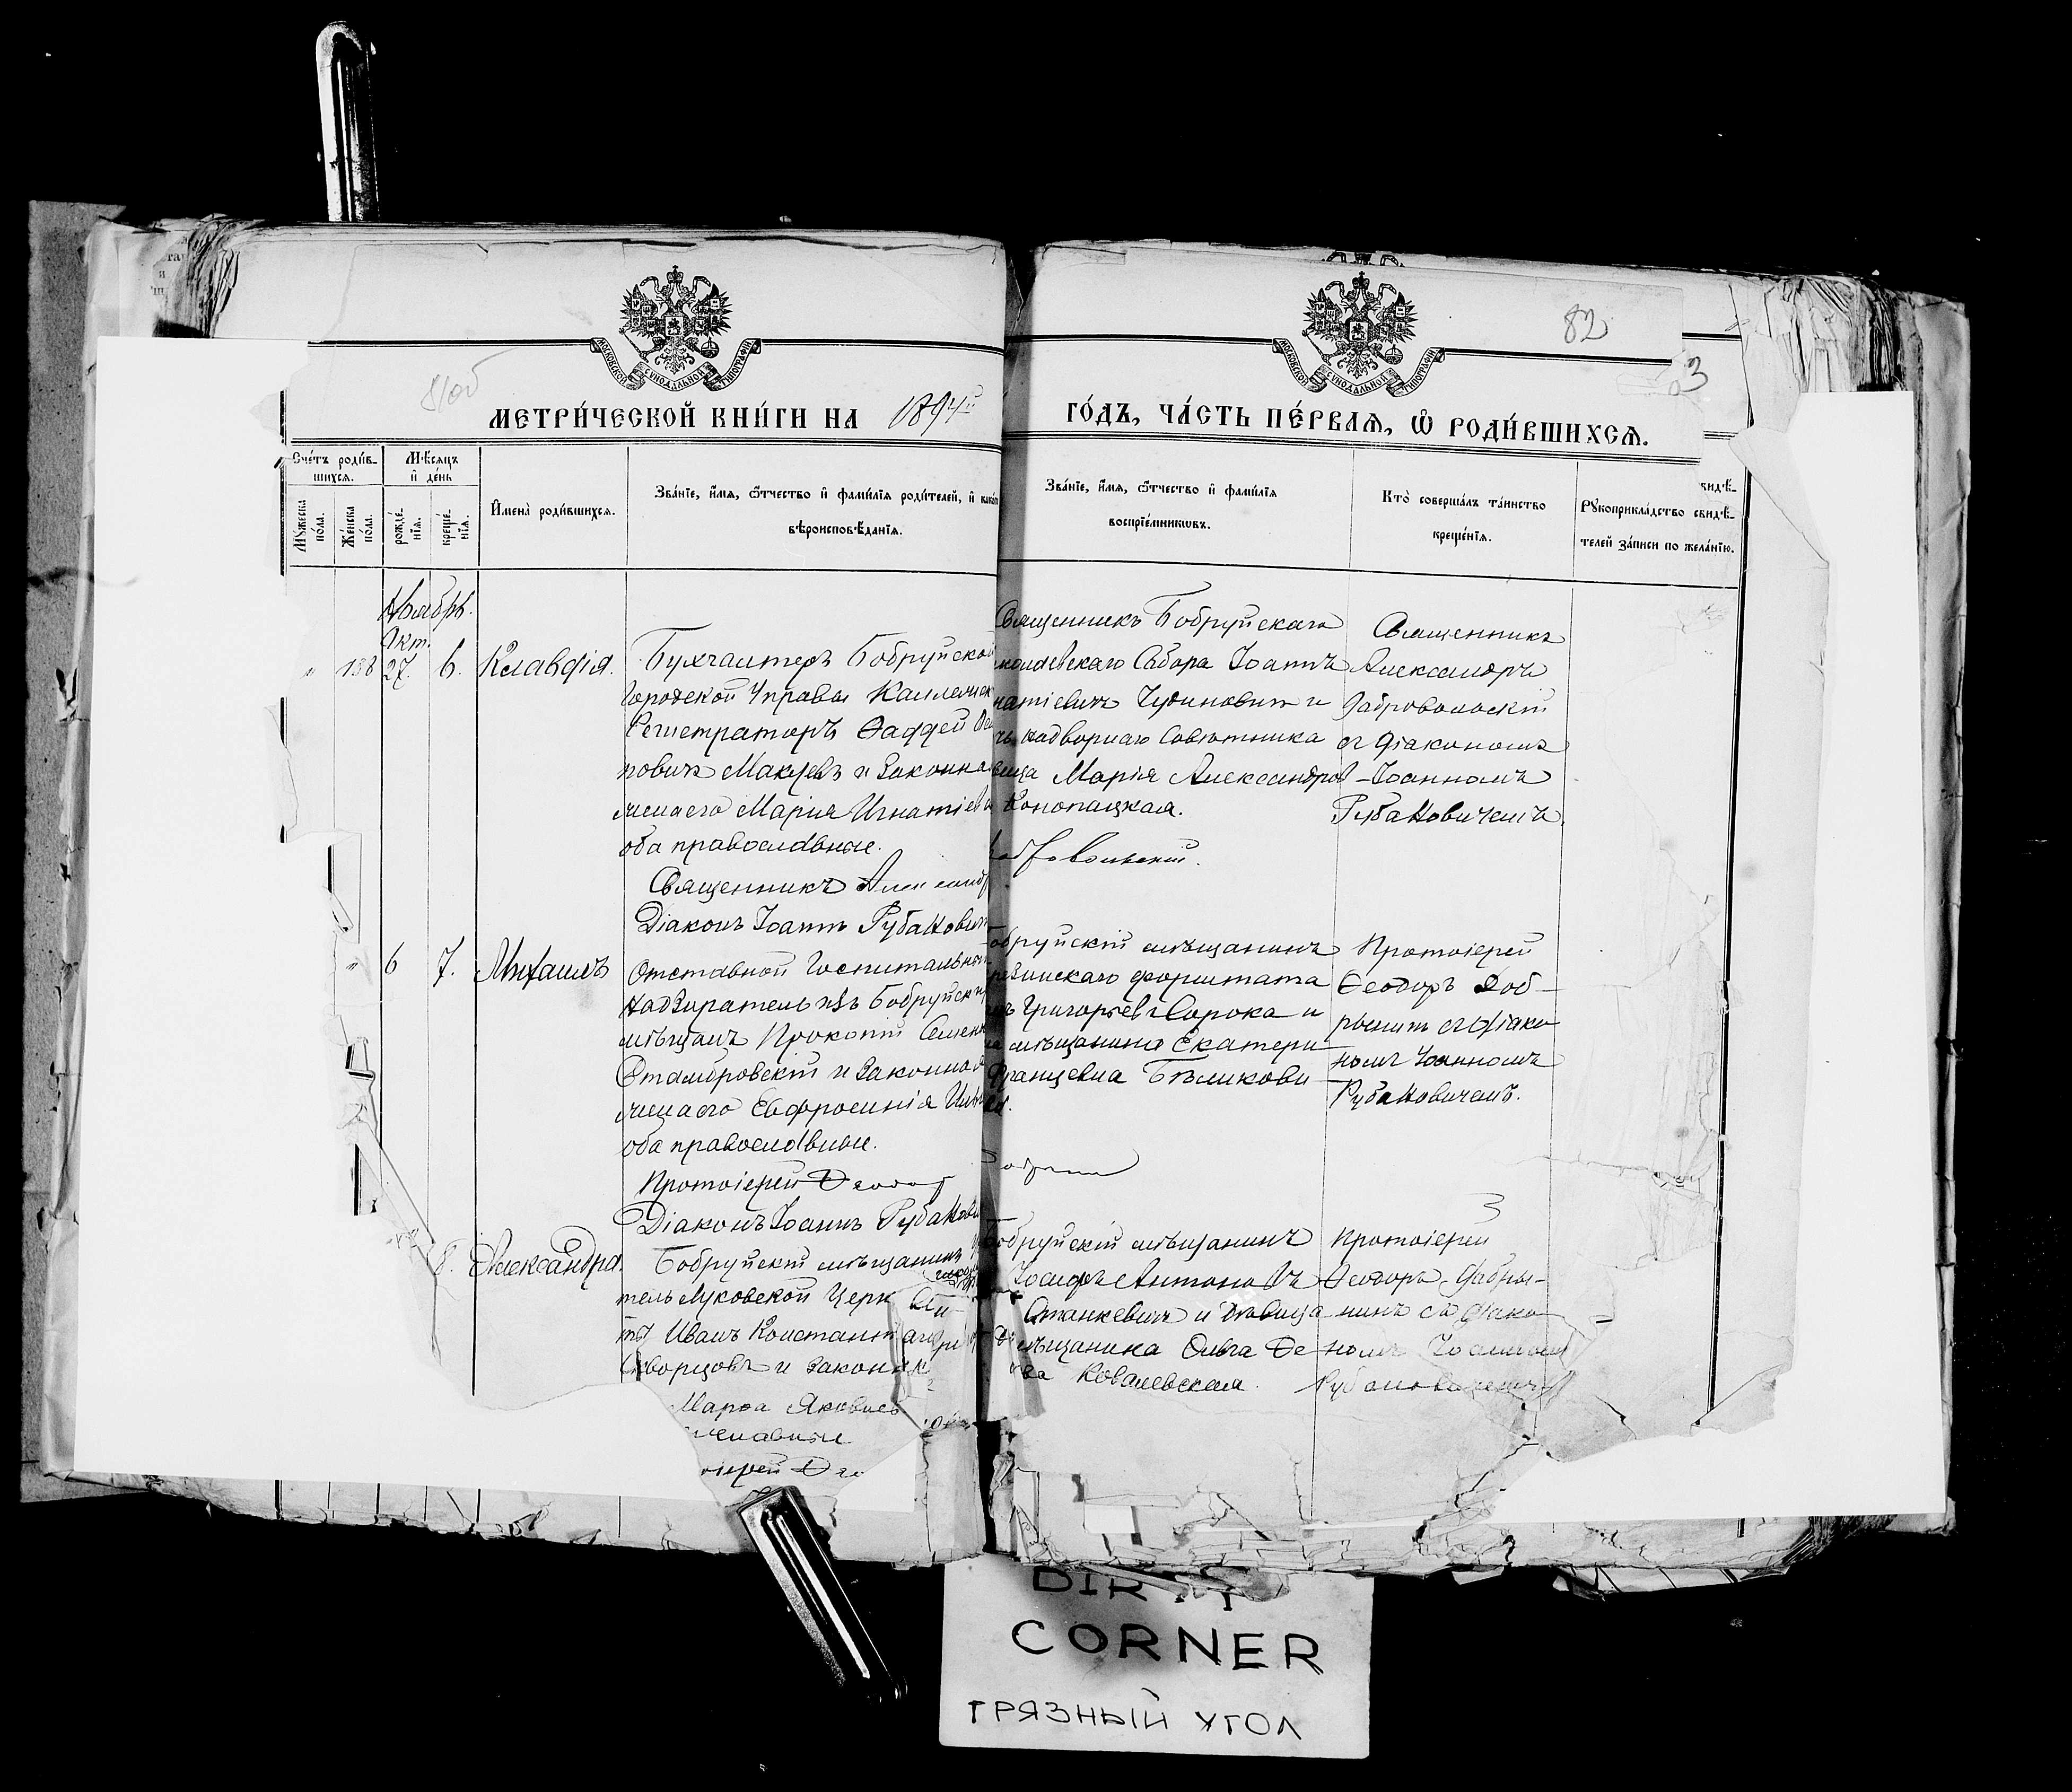 82
3
МОСКОВСКОЙ СѴНОДАЛЬНОЙ ТИПОГРАФІИ
МОСКОВСКОЙ СѴНОДАЛЬНОЙ ТИПОГРАФІИ
МЕТРИ́ЧЕСКОЙ КНИ́ГИ НА 1894й
ГО́ДЪ, ЧА́СТЬ ПЕ́РВАѦ, Ѡ҆ РОДИ́ВШИХСѦ.
Сче́тъ роди́в-
шихсѧ.
Мꙋ́жеска по́ла.
Же́нска по́ла.
Мѣ́сѧцъ
и҆ де́нь
рожде́-
нїѧ.
креще́-
нїѧ.
И҆мена̀ роди́вшихсѧ.
Зва́нїе, и҆́мѧ, ѻ҆́тчество и҆ фами́лїѧ роди́телей, и҆
вѣроисповѣ́данїѧ.
Зва́нїе, и҆́мѧ, ѻ҆́тчество и҆ фами́лїѧ
воспрїе́мникѡвъ.
Кто̀ соверша́лъ та́инство
креще́нїѧ.
свидѣ́-
Рꙋкоприкла́дство свидѣ́-
телей за́писи по жела́нїю.
Ноябрь.
Окт.
138 27. 6. Клавдія.
Бухгалтеръ Бобруйской
Городской Управы Коллежск
Регистраторъ Фаддей
повичъ Макуевъ и законная
жена его Марія Игнатіева
оба православные.
Священникъ Александр
Діаконъ Іоаннъ Рубановичъ
Священникъ Бобруйскаго
колаевскаго Собора Іоаннъ
натіевичъ Чудиновичъ и
чь надворнаго Совѣтника
вица Марія Александров
Конопацкая.
бровольскій.
Священникъ
Александръ
Добровольскій
съ Діакономъ
Іоанномъ
Рубановичемъ.
6 7. Михаилъ
Отставной Госпитальный
надзиратель изъ Бобруйск
мѣщанъ Прокопій Семен
Стамбровскій и законная
жена его Евфросинія
оба православные.
Протоіерей Ѳеодор
Діаконъ Іоаннъ Рубанови
обруйскій мѣщанинъ
зинскаго форштата
ъ Григорьевъ Сорока и
а мѣщанина Екатери
Францевна Бѣликови
Протоіерей
Ѳеодоръ Доб-
рынинъ съ Діако
номъ Іоанномъ
Рубановичемъ.
3
8. Александра.
Бобруйскій мѣщанинъ
тель Луковской Церк
Иванъ Константи
Скворцовъ и закон
Марѳа Яковле
ославные
оіерей Ѳео
Бобруйскій мѣщанинъ
Іосифъ Антоновъ
Станкевичъ и дѣвица
мѣщанина Ольга Де
ва Ковалевская.
Протоіерей
Ѳеодоръ Добры-
нинъ съ Діако
номъ Іоанномъ
Рубановичемъ
DIRTY
CORNER
ГРЯЗНЫЙ УГОЛ